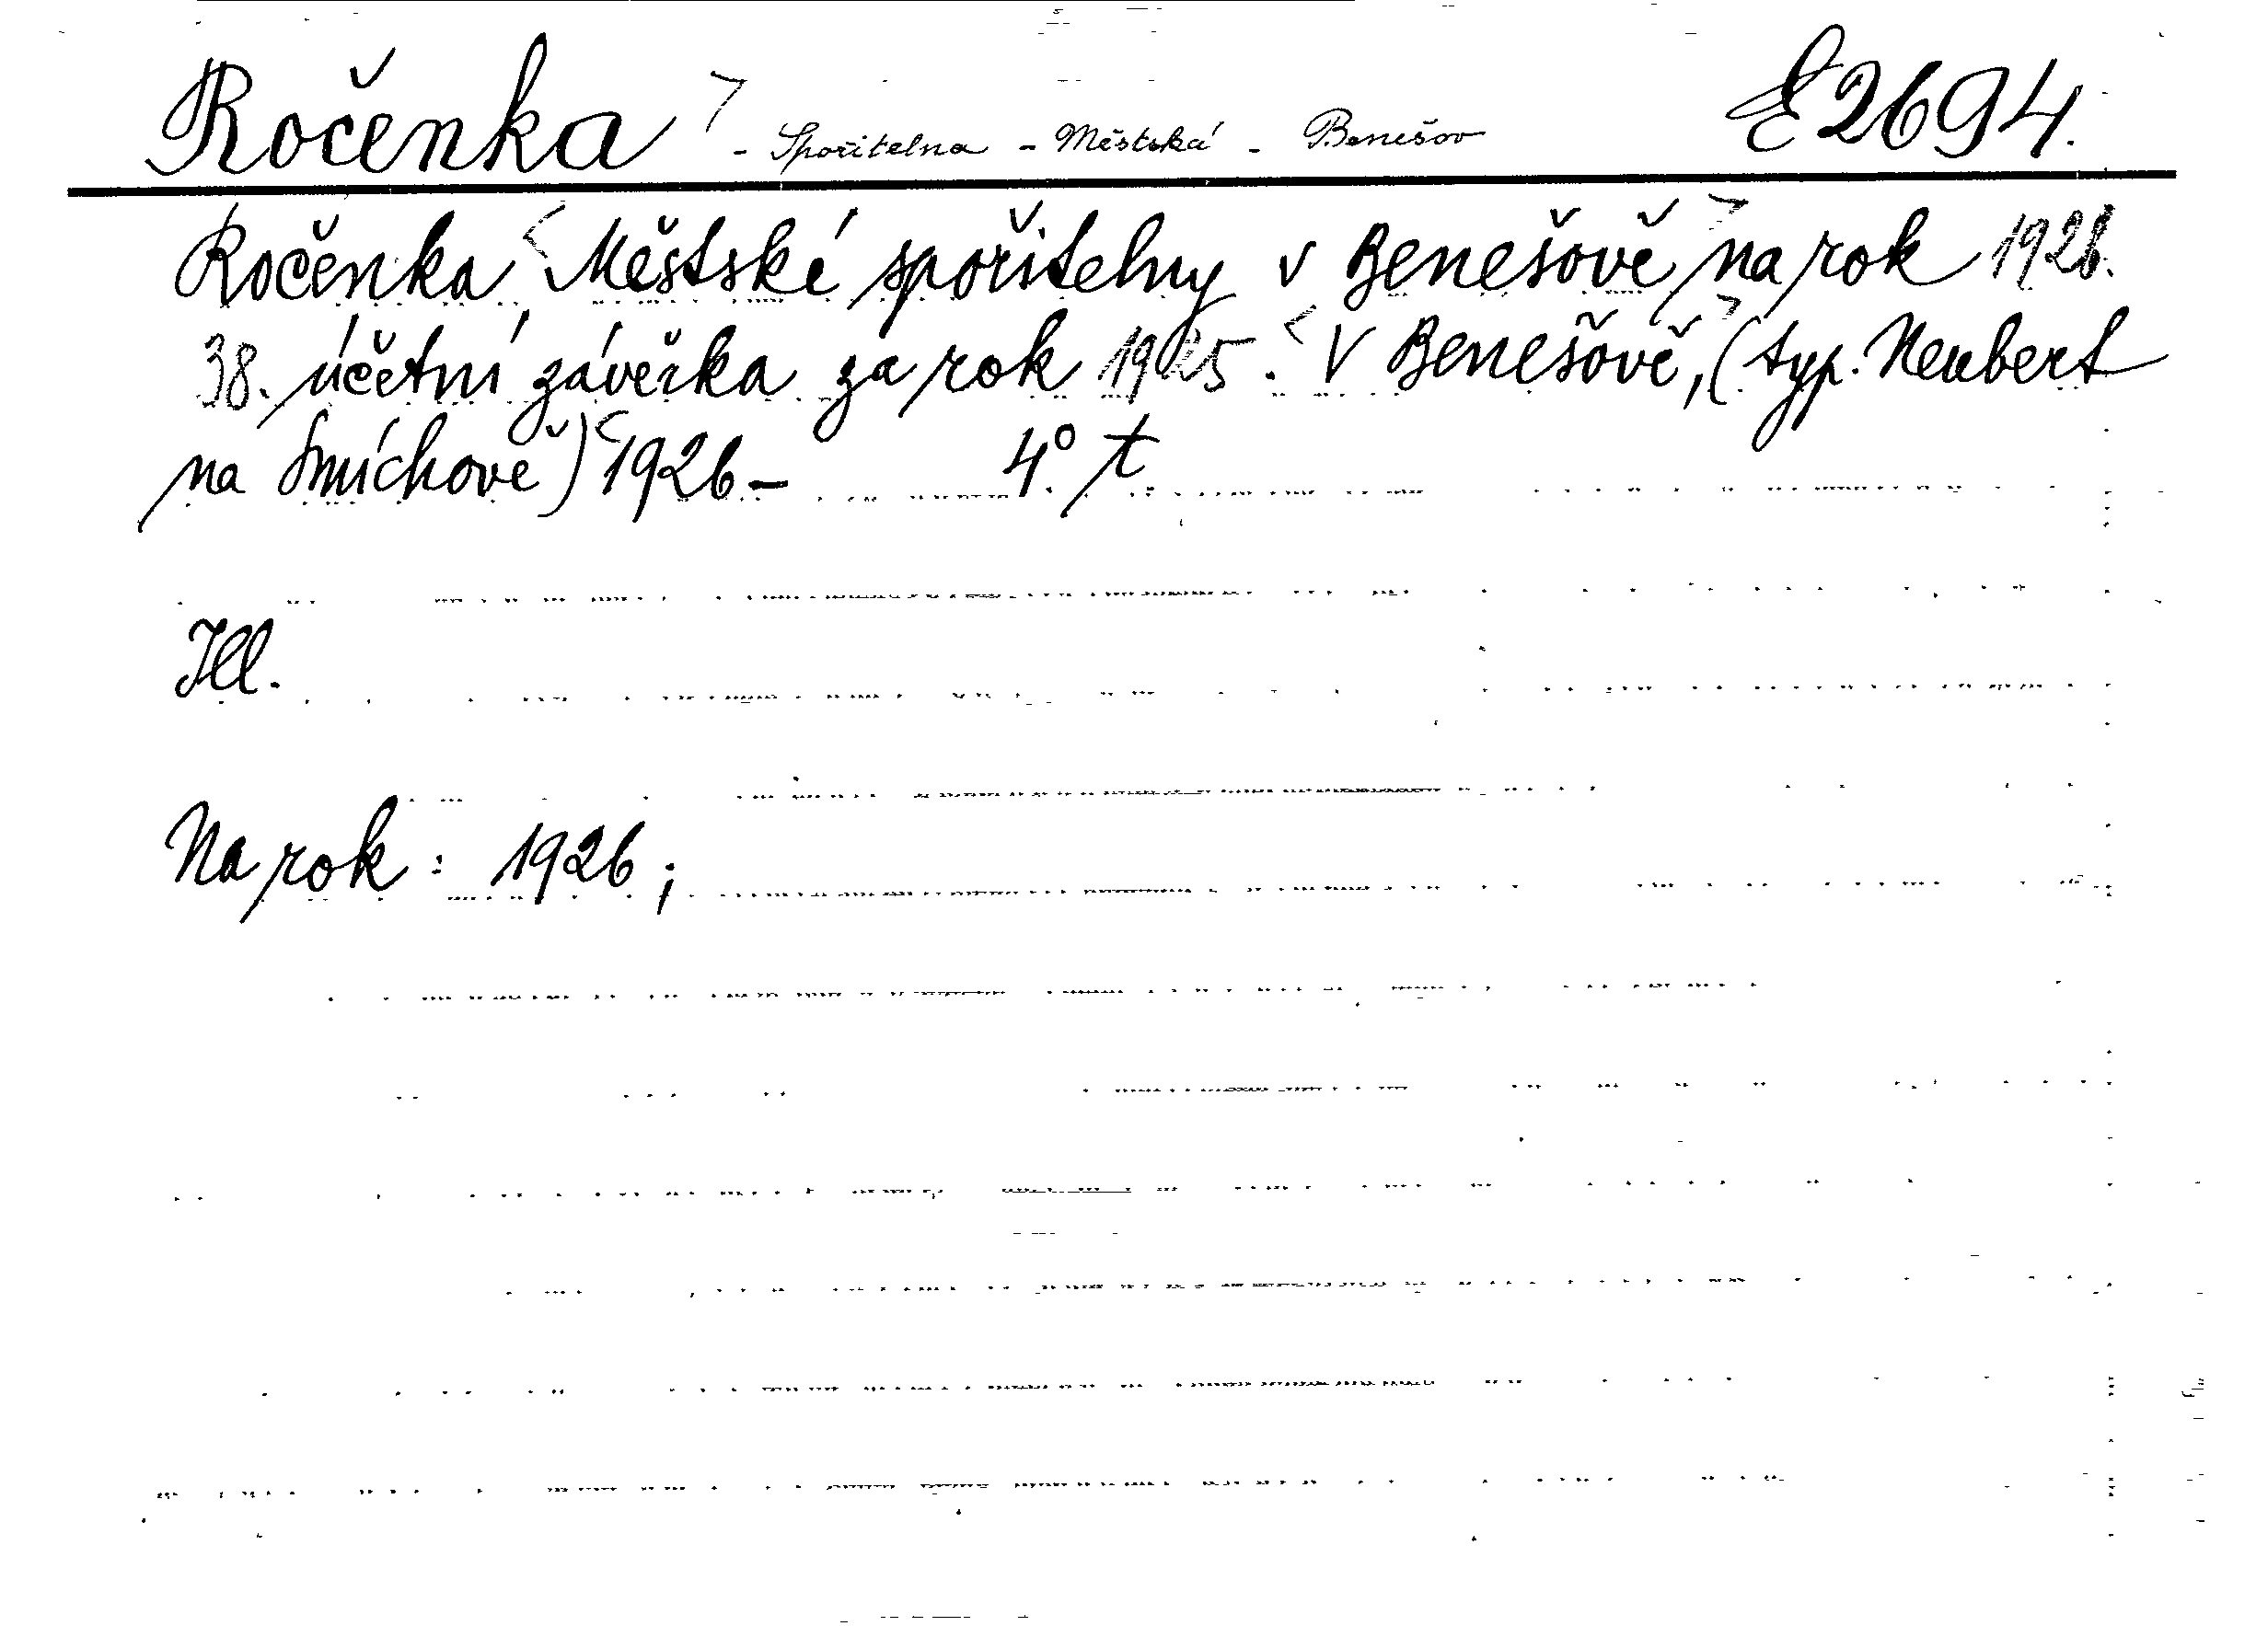 Ročenka - Spořitelna - Městská - Benešov E 2694.
Ročenka Městské spořitelny v Benešově na rok 1926.
38. účetní závěrka za rok 1925. V Benešově, (typ. Neubert
na Smíchově) 1926- 4° t.
Ill.
Na rok: 1926;